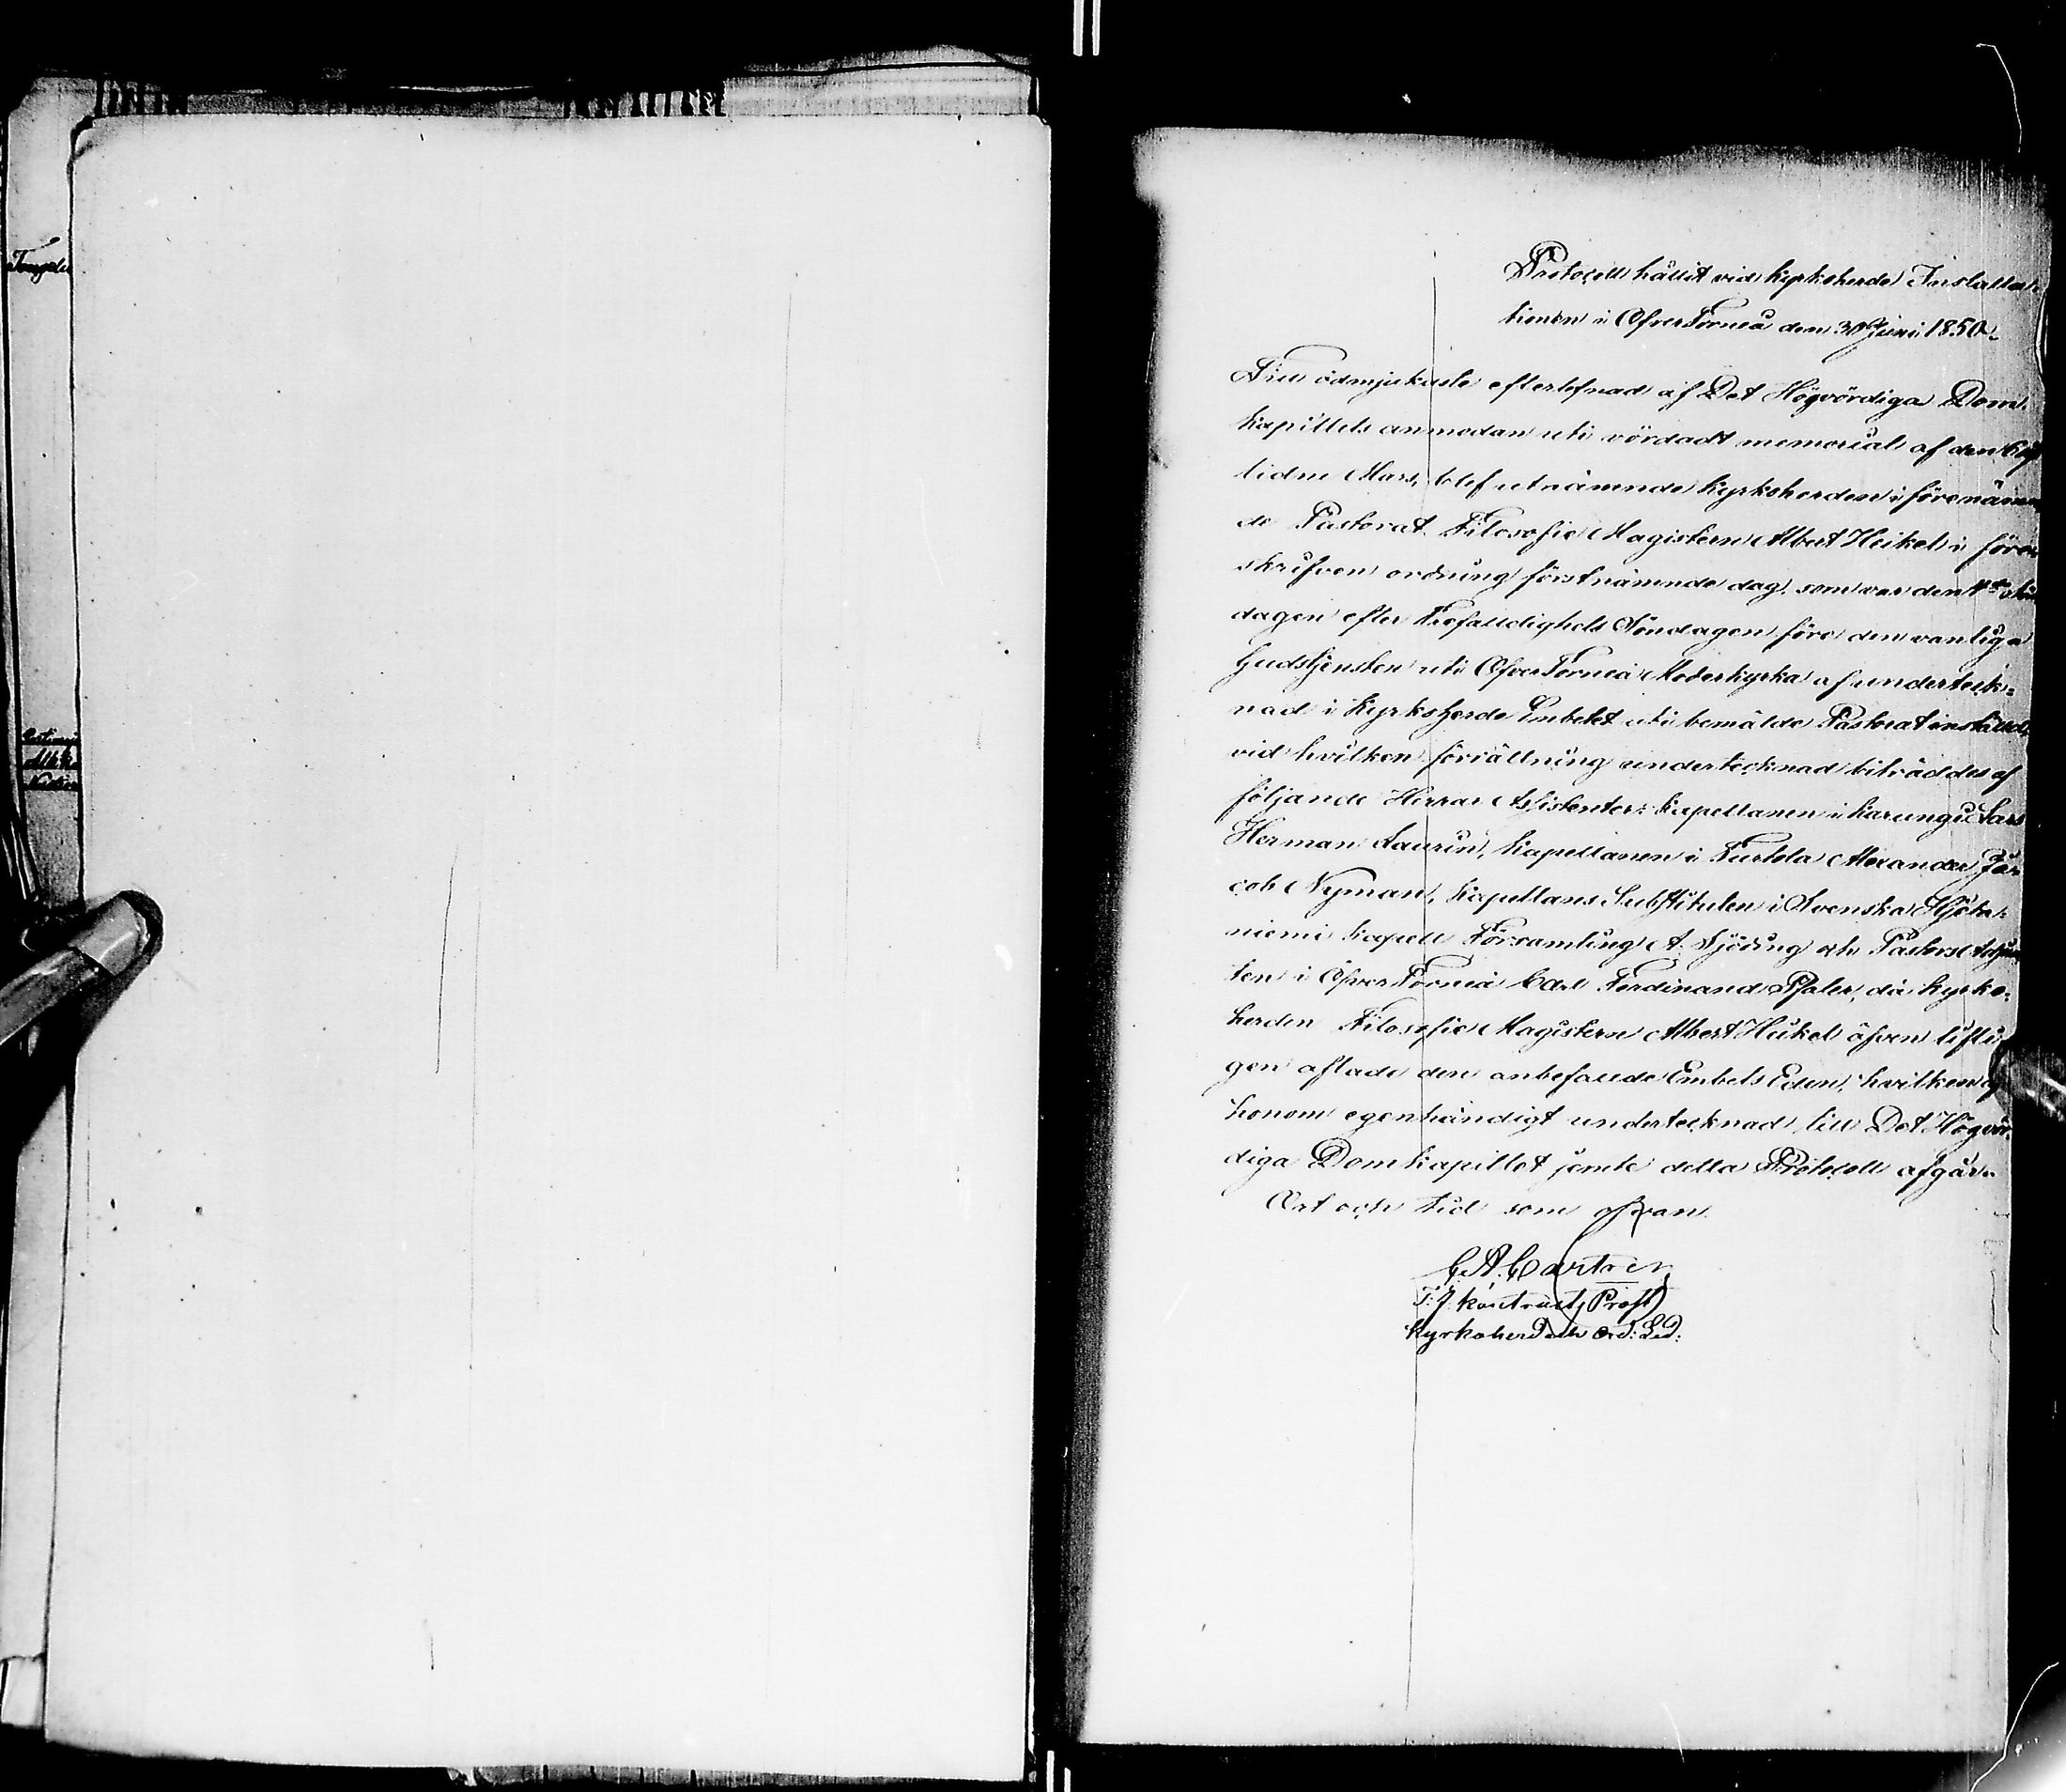 Protocoll hållit vid kyrkoherde Installa-
tionen i Öfver Torneå den 30 Juni 1850.
Till ödmjukaste efterlefnad af Det Högvördiga Dom-
kapitlets anmodan uti vördadt memorial af den
lidne Mars, blef utnämnde Kyrkoherden i förenämn
de Pastorat Filosofie Magistern Albert Heikel i före
skrifven ordning förstnämnde dag, som var den
dagen efter Trefalldighets Söndagen före den vanliga
Gudstjensten uti Öfver Torneå Moderkyrka af underteck-
nad i Kyrkoherde Embetet uti bemälde Pastorat installd,
vid hvilken förrättning undertecknad biträddes af
följande Herrar Assistenter: Kapellanen i Karungi Lars
Herman Laurin, Kapellanen i Turtola Alexander Ja-
cob Nyman, Kapellans Substituten i Svenska Hjeta-
niemi kapell Församling A. Sjöding och Pastors Adjunc
ten i Öfver Torneå Carl Ferdinand Pfaler, då Kyrko-
herden Filosofie Magistern Albert Heikel äfven lifli
gen aflade den anbefallde Embets Eden, hvilken af
honom egenhändigt undertecknad, till Det Högvör-
diga Domkapitlet jemte detta Protocoll afgår.
Ort och tid som ofvan.
C. A. Castrén
T. f. Kontrakts Prost
Kyrkoherde och Ord: Led: